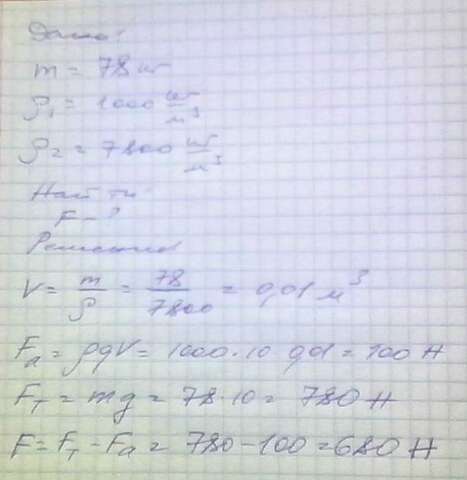 Дано:
m = 78 кг
ρ₁ = 1000 кг/м³
ρ₂ = 7800 кг/м³
Найти
F - ?
Решение
V = m/ρ = 78/7800 = 0,01 м³
Fa = ρgV = 1000·10 0,01 = 100 Н
Fт = mg = 78·10 = 780 Н
F = Fт - Fa = 780 - 100 = 680 Н